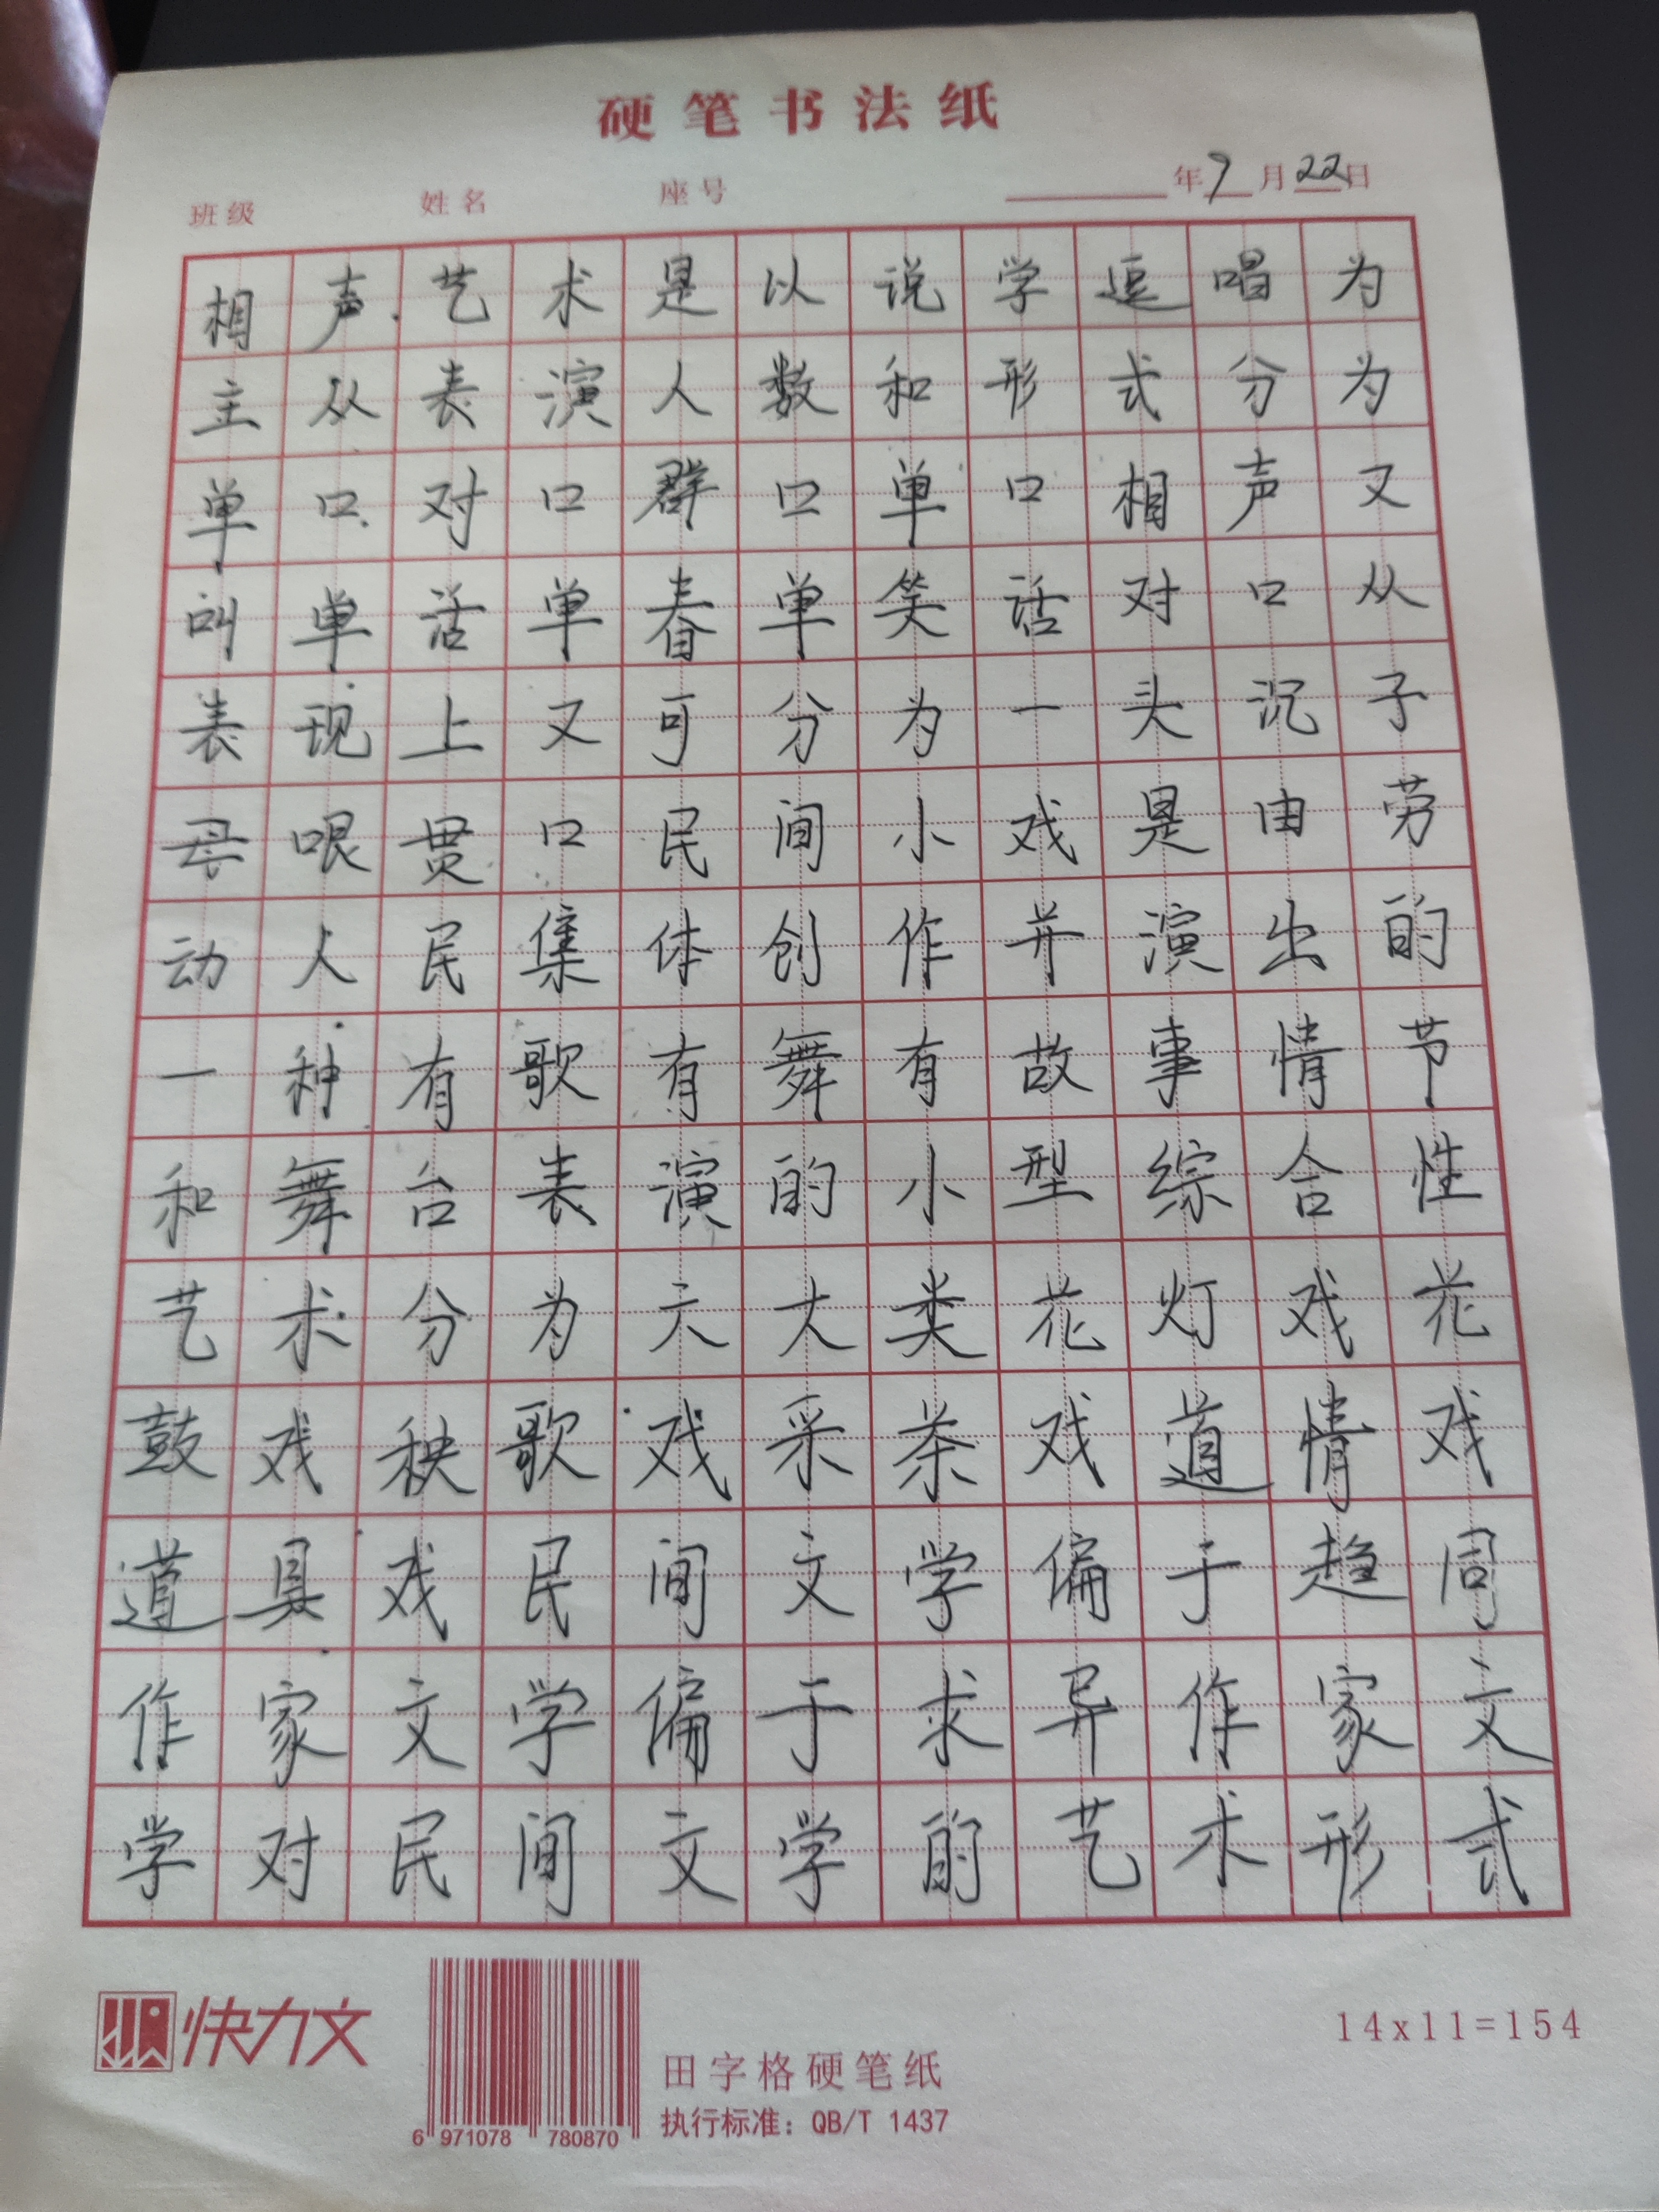 硬笔书法纸
班级 姓名 座号 年9月22日
相声艺术是以说学逗唱为
主从表演人数和形式分为
单口对口群口单口相声又
叫单活单春单笑话对口从
表现上又可分为一头沉子
母哏贯口民间小戏是由劳
动人民集体创作并演出的
一种有歌有舞有故事情节
和舞台表演的小型综合性
艺术分为六大类花灯戏花
鼓戏秧歌戏采茶戏道情戏
道具戏民间文学偏于趋同
作家文学偏于求异作家文
学对民间文学的艺术形式
快力文
6 971078 780870
田字格硬笔纸
执行标准：QB/T 1437
14x11=154